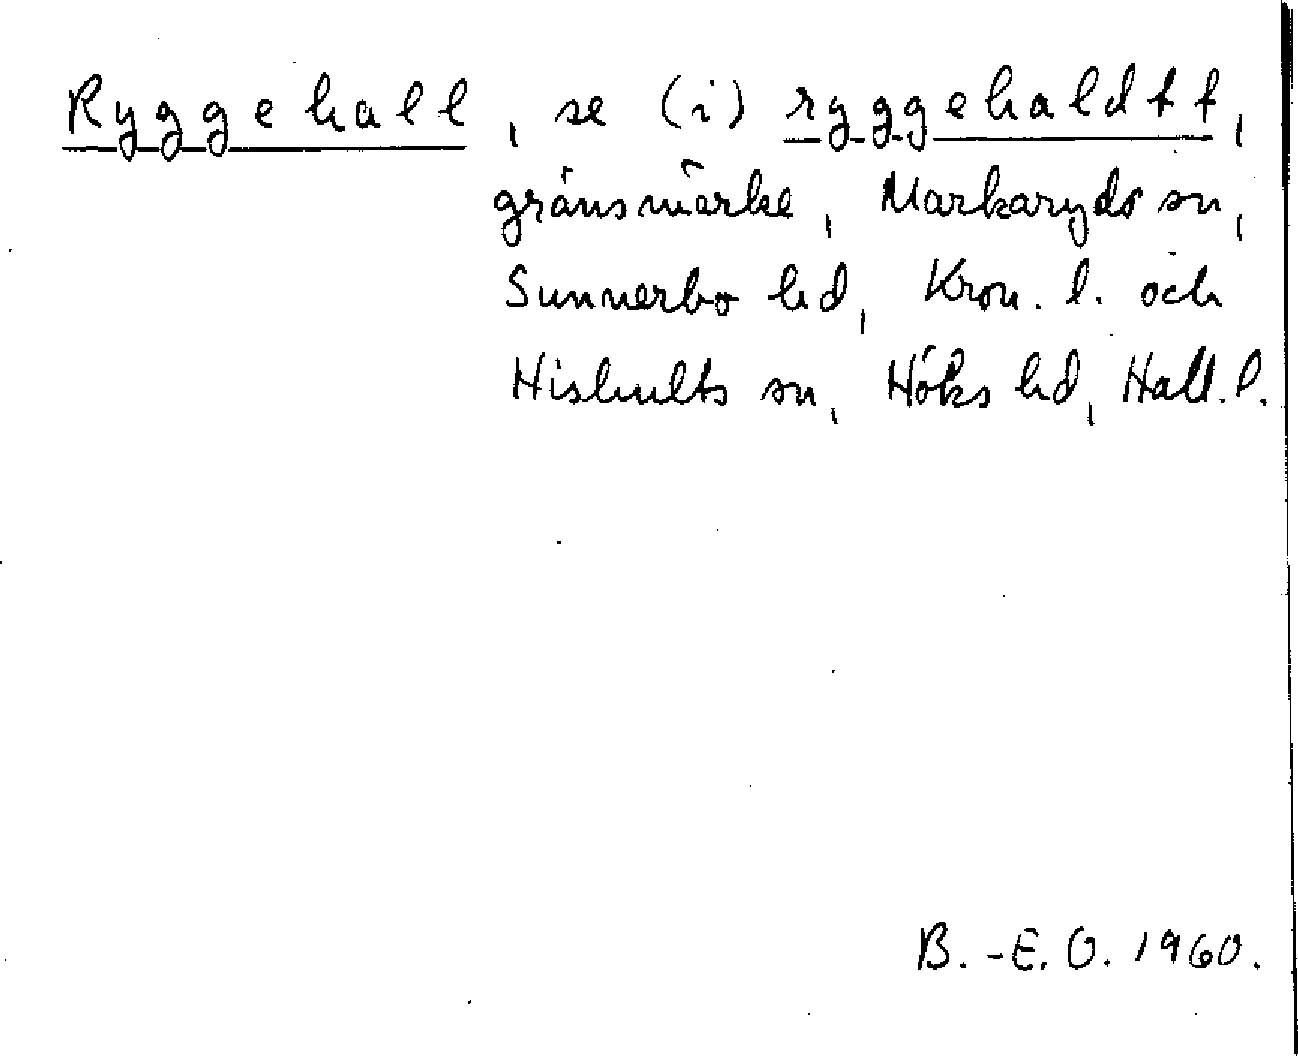 Ryggehall, se (i) ryggehaldtt,
gränsmärke, Markaryds sn,
Sunnerbo hd, Kron. l. och
Hishults sn, Höks hd, Hall. l.
B.-E. O. 1960.